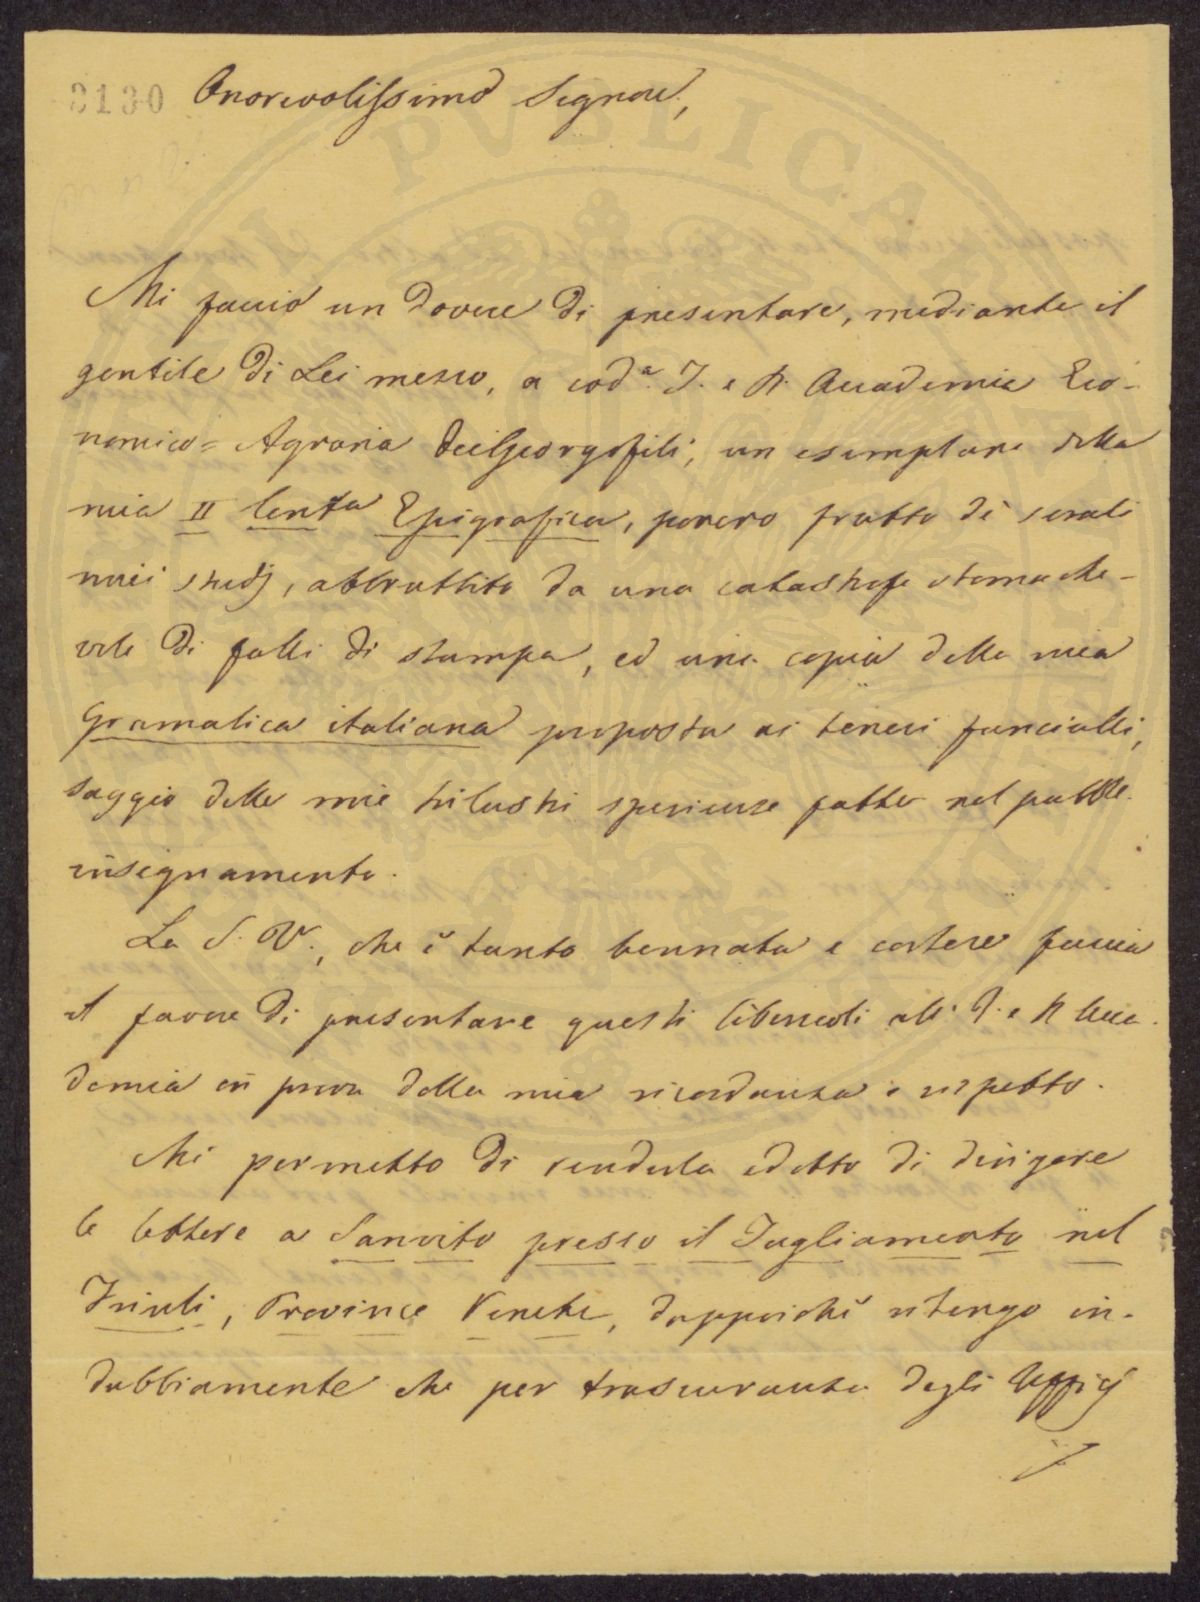 3130 Onorevolissimo Signore,
Mi faccio un dovere di presentare, mediante il
gentile di Lei mezzo, a cod.ª I. e R. Accademia Eco-
nomico=Agraria dei Georgofili, un esemplare della
mia II Centa Epigrafica, povero frutto di serali
miei studj, abbruttito da una catastrofe stomache-
vole di falli di stampa, ed una copia della mia
Gramatica italiana proposta ai teneri fanciulli,
saggio delle mie trilustri sperienze fatte nel pubble.
insegnamento.
La S. V., che è tanto bennata e cortese faccia
il favore di presentare questi libercoli all' I. e R. Acca-
demia in prova della mia ricordanza e rispetto.
Mi permetto di renderla edotto di dirigere
le lettere a Sanvito presso il Tagliamento nel
Friuli, Provincie Venete, dappoichè ritengo in-
dubbiamente che per trascuranza degli Ufficj